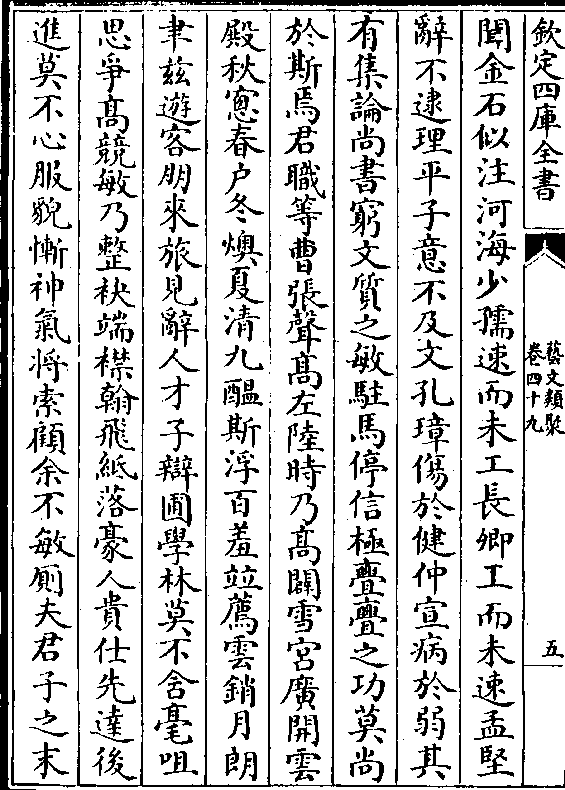 欽定四庫全書
藝文類聚
卷四十九
五
聞金石似注河海少孺速而未工長卿工而未速孟堅
辭不逮理平子意不及文孔璋傷於健仲宣病於弱其
有集論尚書窮文質之敏駐馬停信極亹亹之功莫尚
於斯焉君職等曹張聲髙左陸時乃髙闢雪宮廣開雲
殿秋窻春户冬燠夏清九醖斯浮百羞竝薦雲銷月朗
聿兹遊客朋來旅見辭人才子辯圃學林莫不含毫咀
思爭髙競敏乃整袂端襟翰飛紙落豪人貴仕先達後
進莫不心服貌慚神氣将索顧余不敏厠夫君子之末